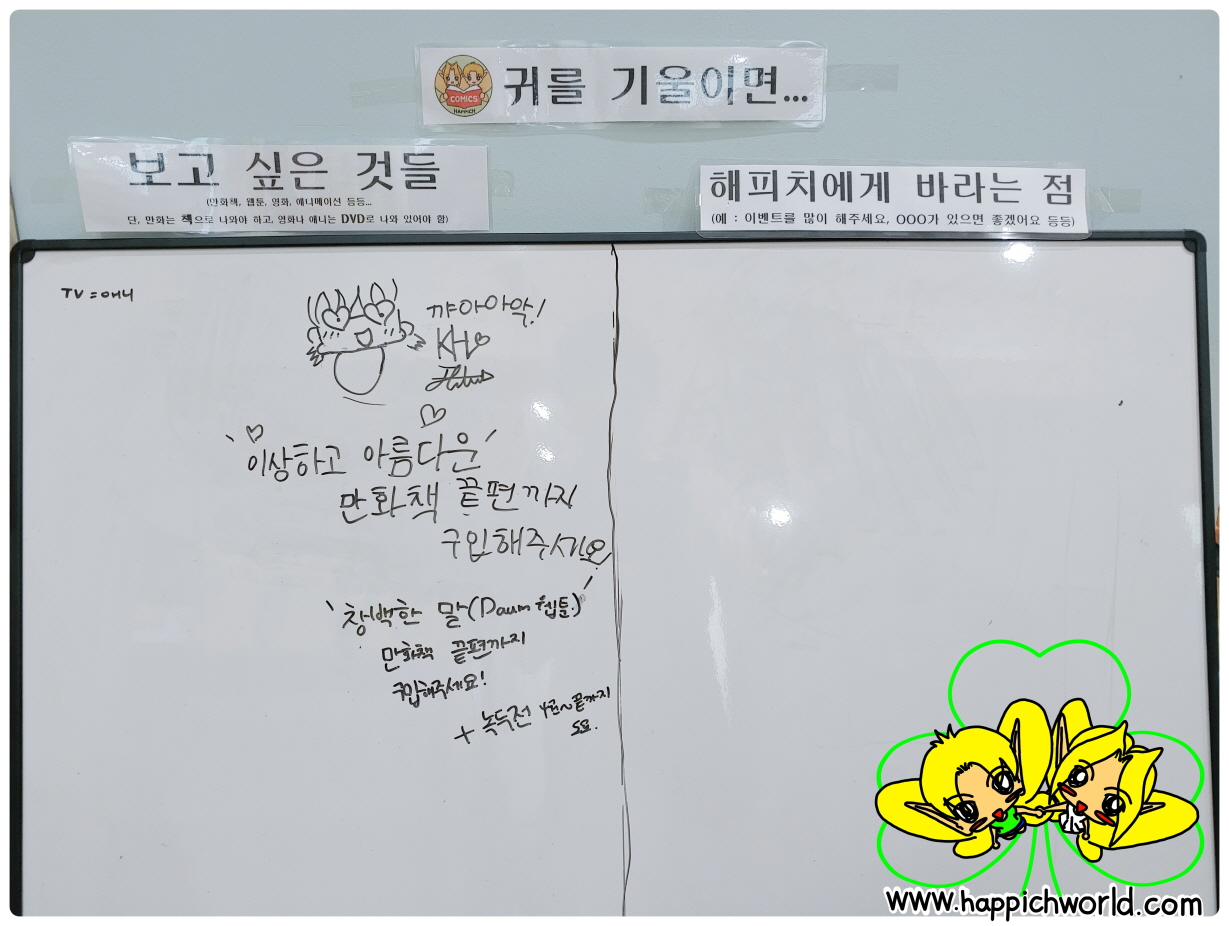 COMICS
HAPPICH
귀를 기울이면...
보고 싶은 것들
(만화책, 웹툰, 영화, 애니메이션 등등...
단, 만화는 책으로 나와야 하고, 영화나 애니는 DVD로 나와 있어야 함)
해피치에게 바라는 점
(예 : 이벤트를 많이 해주세요, OOO가 있으면 좋겠어요 등등)
TV = 애니
꺄아아악!
이상하고 아름다운
만화책 끝편까지
구입해주세요
창백한 말(Daum 웹툰)
만화책 끝편까지
구입해주세요!
+ 녹두전 4권~끝까지
www.happichworld.com